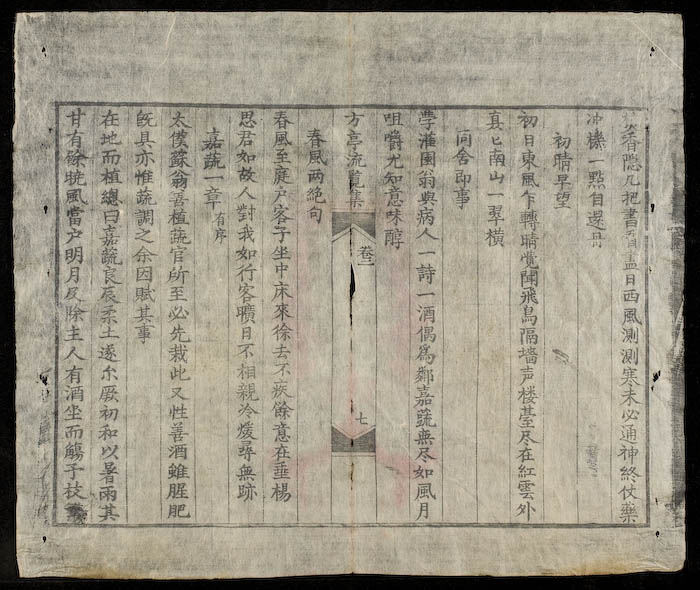 隐几把書看盡日西風測測寒未必通神終仗藥
冲機一點自還丹
初晴早望
初日東風乍轉晴嘗聞飛鳥隔墻声楼䑓尽在紅雲外
裊匕南山一翠横
向舍即事
學灌園翁與病人一詩一酒偶為鄰嘉蔬無尽如風月
咀嚼尤知意味醇
方亭流覧集
卷二
七
春風两絶句
春風至庭户客子坐中床來徐去不疾餘意在垂楊
思君如故人對我如行客曠日不相親冷煖尋無跡
嘉蔬一章有序
太僕蘇翁喜植蔬官所至必先栽此又性善酒雖腥肥
既具亦惟蔬調之余因賦其事
在地而植總曰嘉蔬良辰柔土遂尓厥初和以暑雨其
甘有餘晓風當户明月反除主人有酒坐而觴予枝